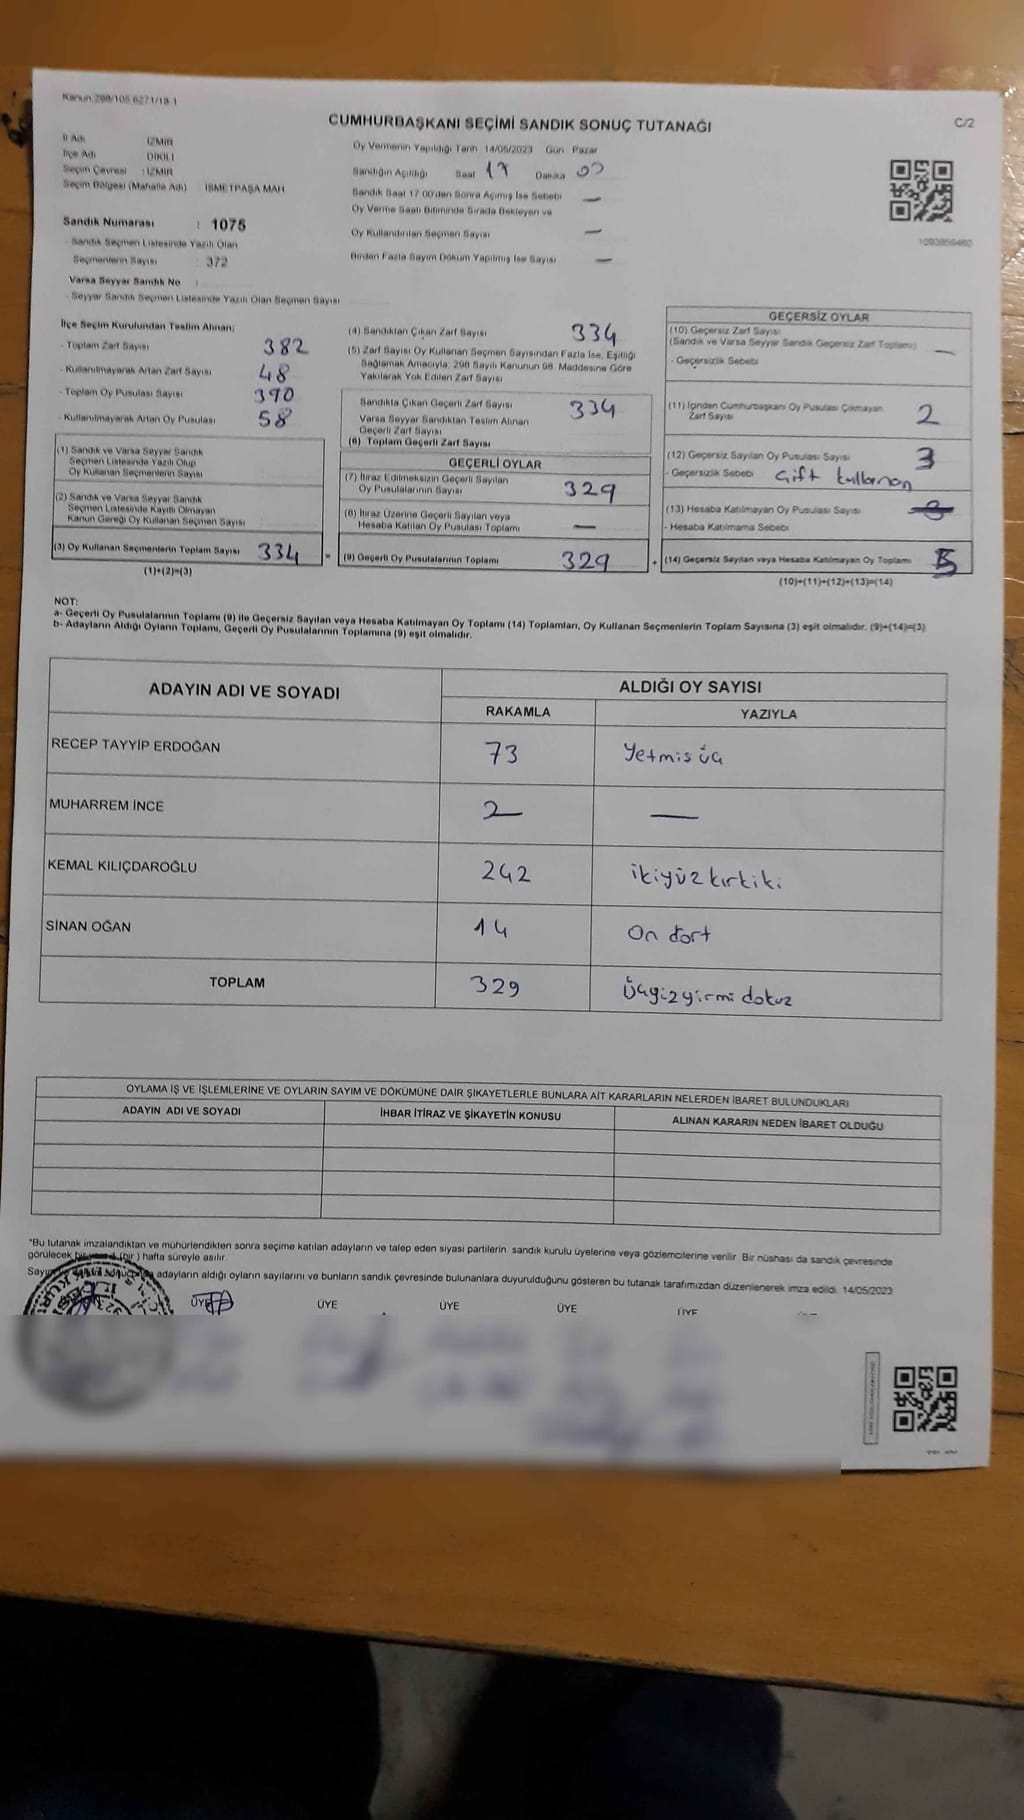 Kanun:298/105,6271/18-1
CUMHURBAŞKANI SEÇİMİ SANDIK SONUÇ TUTANAĞI
C/2
İl Adı : İZMİR
İlçe Adı : DİKİLİ
Seçim Çevresi : İZMİR
Seçim Bölgesi (Mahalle Adı) : İSMETPAŞA MAH
Oy Vermenin Yapıldığı Tarih :14/05/2023 Gün : Pazar
Sandığın Açıldığı Saat 17 Dakika 00
Sandık Saat 17.00'den Sonra Açılmış İse Sebebi —
Oy Verme Saati Bitiminde Sırada Bekleyen ve
Oy Kullandırılan Seçmen Sayısı —
Birden Fazla Sayım Döküm Yapılmış İse Sayısı —
1093859460
Sandık Numarası : 1075
- Sandık Seçmen Listesinde Yazılı Olan
Seçmenlerin Sayısı : 372
Varsa Seyyar Sandık No :
- Seyyar Sandık Seçmen Listesinde Yazılı Olan Seçmen Sayısı
İlçe Seçim Kurulundan Teslim Alınan;
- Toplam Zarf Sayısı 382
- Kullanılmayarak Artan Zarf Sayısı 48
- Toplam Oy Pusulası Sayısı 390
- Kullanılmayarak Artan Oy Pusulası 58
(1) Sandık ve Varsa Seyyar Sandık
Seçmen Listesinde Yazılı Olup
Oy Kullanan Seçmenlerin Sayısı
(2) Sandık ve Varsa Seyyar Sandık
Seçmen Listesinde Kayıtlı Olmayan
Kanun Gereği Oy Kullanan Seçmen Sayısı
(3) Oy Kullanan Seçmenlerin Toplam Sayısı 334
(1)+(2)=(3)
(4) Sandıktan Çıkan Zarf Sayısı 334
(5) Zarf Sayısı Oy Kullanan Seçmen Sayısından Fazla İse, Eşitliği
Sağlamak Amacıyla, 298 Sayılı Kanunun 98. Maddesine Göre
Yakılarak Yok Edilen Zarf Sayısı
Sandıkta Çıkan Geçerli Zarf Sayısı 334
Varsa Seyyar Sandıktan Teslim Alınan
Geçerli Zarf Sayısı
(6) Toplam Geçerli Zarf Sayısı
GEÇERLİ OYLAR
(7) İtiraz Edilmeksizin Geçerli Sayılan
Oy Pusulalarının Sayısı 329
(8) İtiraz Üzerine Geçerli Sayılan veya
Hesaba Katılan Oy Pusulası Toplamı —
= (9) Geçerli Oy Pusulalarının Toplamı 329
GEÇERSİZ OYLAR
(10) Geçersiz Zarf Sayısı
(Sandık ve Varsa Seyyar Sandık Geçersiz Zarf Toplamı) —
- Geçersizlik Sebebi
(11) İçinden Cumhurbaşkanı Oy Pusulası Çıkmayan
Zarf Sayısı 2
(12) Geçersiz Sayılan Oy Pusulası Sayısı 3
- Geçersizlik Sebebi Çift kullanan
(13) Hesaba Katılmayan Oy Pusulası Sayısı
- Hesaba Katılmama Sebebi
+ (14) Geçersiz Sayılan veya Hesaba Katılmayan Oy Toplamı 5
(10)+(11)+(12)+(13)=(14)
NOT:
a- Geçerli Oy Pusulalarının Toplamı (9) ile Geçersiz Sayılan veya Hesaba Katılmayan Oy Toplamı (14) Toplamları, Oy Kullanan Seçmenlerin Toplam Sayısına (3) eşit olmalıdır. (9)+(14)=(3)
b- Adayların Aldığı Oyların Toplamı, Geçerli Oy Pusulalarının Toplamına (9) eşit olmalıdır.
ADAYIN ADI VE SOYADI ALDIĞI OY SAYISI
RAKAMLA YAZIYLA
RECEP TAYYİP ERDOĞAN 73 Yetmis üç
MUHARREM İNCE 2 —
KEMAL KILIÇDAROĞLU 242 ikiyüz kırkiki
SİNAN OĞAN 14 On dört
TOPLAM 329 Üçyüzyirmi dokuz
OYLAMA İŞ VE İŞLEMLERİNE VE OYLARIN SAYIM VE DÖKÜMÜNE DAİR ŞİKAYETLERLE BUNLARA AİT KARARLARIN NELERDEN İBARET BULUNDUKLARI
ADAYIN ADI VE SOYADI İHBAR İTİRAZ VE ŞİKAYETİN KONUSU ALINAN KARARIN NEDEN İBARET OLDUĞU
*Bu tutanak imzalandıktan ve mühürlendikten sonra seçime katılan adayların ve talep eden siyasi partilerin sandık kurulu üyelerine veya gözlemcilerine verilir. Bir nüshası da sandık çevresinde
görülecek bir (bir ) hafta süreyle asılır.
adayların aldığı oyların sayılarını ve bunların sandık çevresinde bulunanlara duyurulduğunu gösteren bu tutanak tarafımızdan düzenlenerek imza edildi. 14/05/2023
ÜYE ÜYE ÜYE ÜYE ÜYE